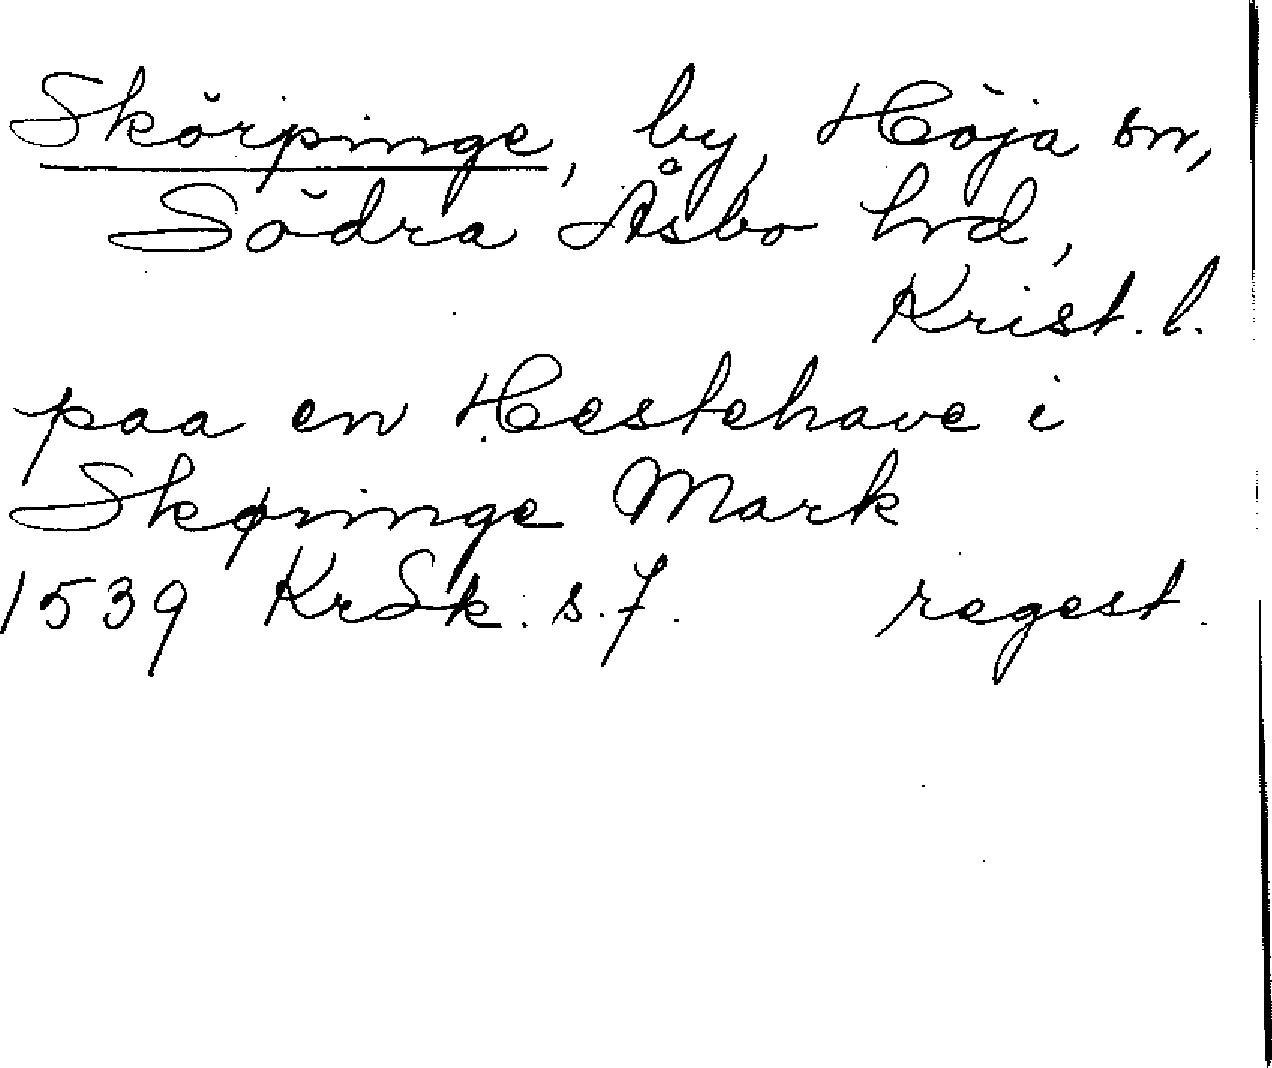 Skörpinge, by, Höja sn,
Södra Åsbo hrd,
Krist. l.
paa en Hestehave i
Skøringe Mark
1539 KrSk. s. 7. regest.